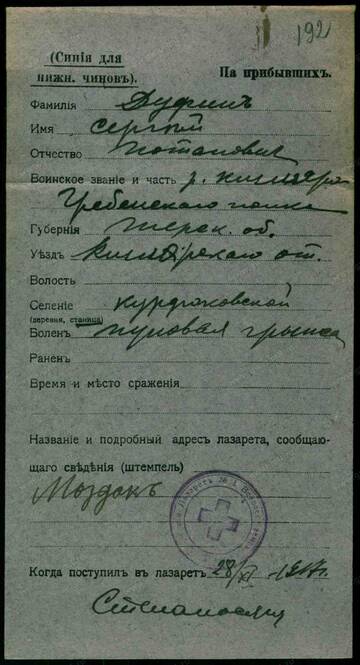 192
(Синія для
нижн. чиновъ).
На прибывшихъ.
Фамилія Дуфинъ
Имя Сергѣй
Отчество Потаповичъ
Воинское званіе и часть р. Кизляро
Гребенскаго полка
Губернія Терск. об.
Уѣздъ Кизлярскаго от.
Волость
Селеніе Курдюковской
(деревня, станица)
Боленъ пуповая грыжа
Раненъ
Время и мѣсто сраженія
Названіе и подробный адресъ лазарета, сообщаю-
щаго свѣдѣнія (штемпель)
Моздокъ
Когда поступилъ въ лазаретъ 28/XI -1917г.